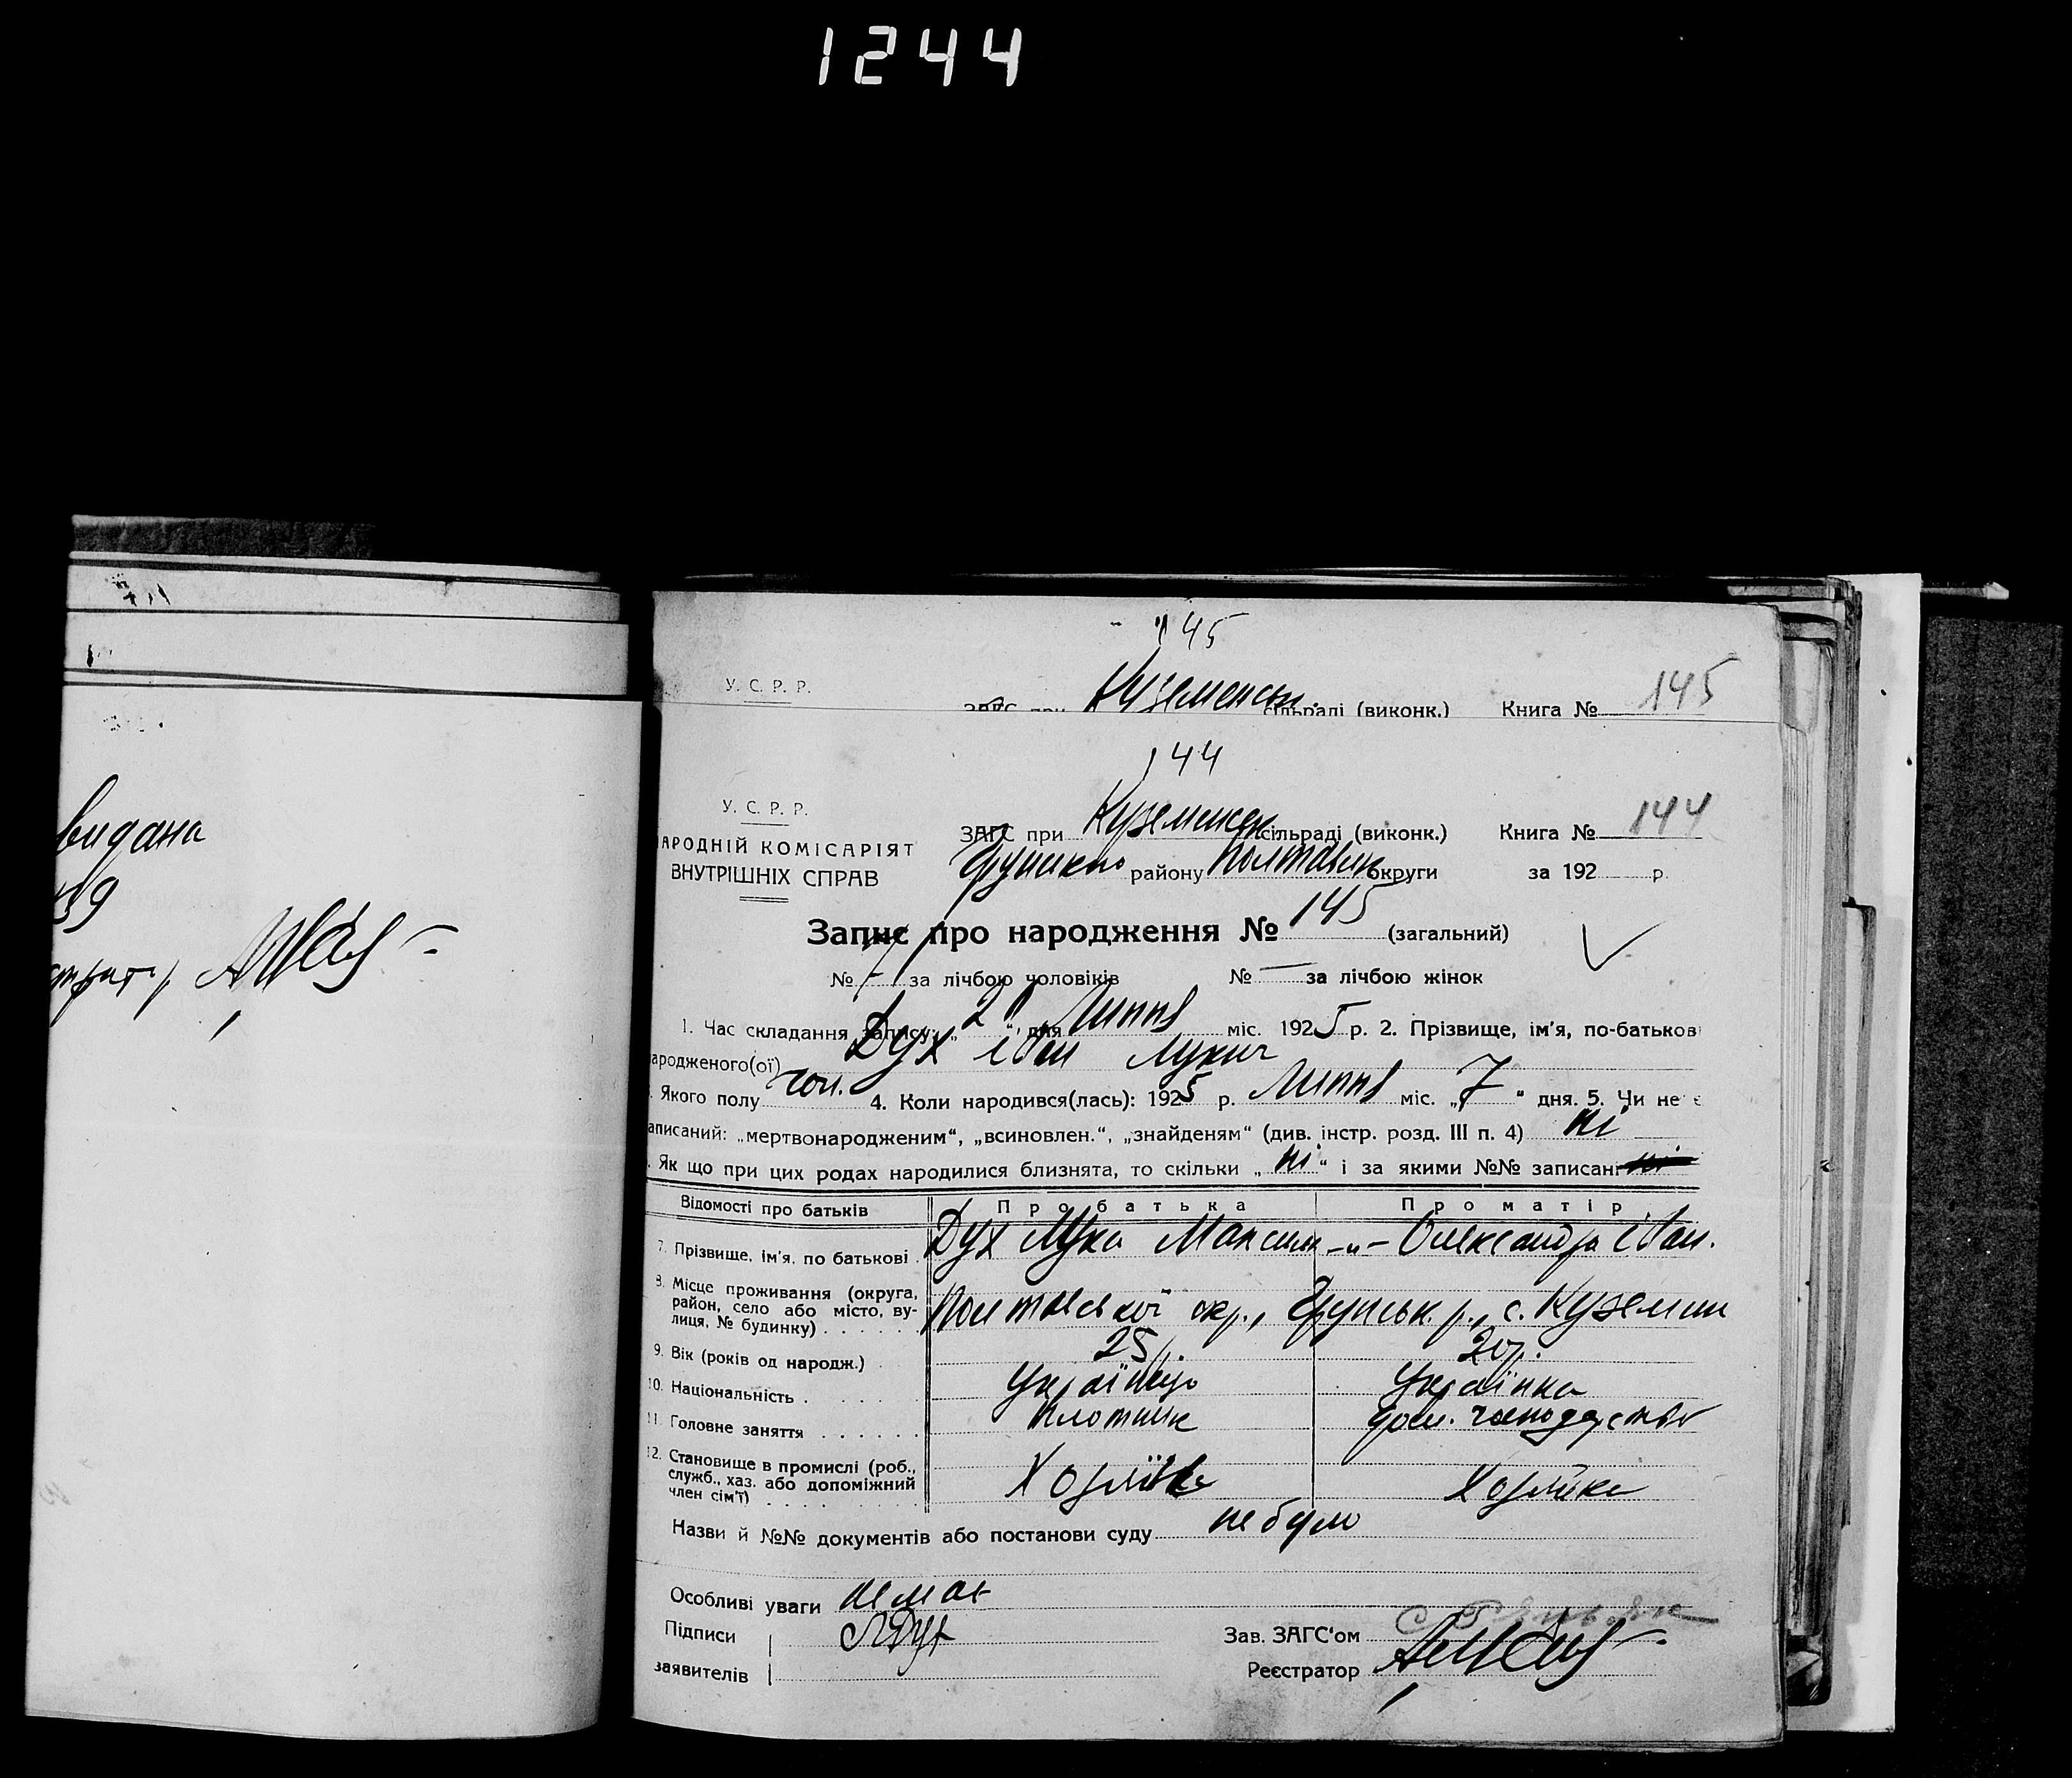 1244
видана
145
У. С. Р. Р.
ЗАГС при Куземенськ. сільраді (виконк.) Книга № 145
144
У. С. Р. Р.
ЗАГС при Куземенськ сільраді (виконк.) Книга № 144
АРОДНІЙ КОМІСАРІЯТ
ВНУТРІШНІХ СПРАВ
району Полтавськ округи за 192 р.
Запис про народження № 145 (загальний)
№ за лічбою чоловіків № — за лічбою жінок
1. Час складання запису: „ “ дня Липня міс. 1925 р. 2. Прізвище, ім’я, по-батькові
ародженого(ої) Дух Іван Лукич
Якого полу чол. 4. Коли народився(лась): 1925 р. Липня міс. „7“ дня. 5. Чи не є
аписаний: „мертвонародженим“, „всиновлен.“, „знайденям“ (див. інстр. розд. III п. 4) ні
. Як що при цих родах народилися близнята, то скільки „ні“ і за якими №№ записані
Відомості про батьків Про батька Про матір
7. Прізвище, ім’я, по батькові . Дух Лука Максим -„- Олександра Іван.
8. Місце проживання (округа, район, село або місто, вулиця, № будинку) . . . . . . Полтавської окр., Грунськ. р., с. Куземин
9. Вік (років од народж.) 25 р. 20 р.
10. Національність . Українець Українка
11. Головне заняття . . . . . . плотник дом. господарство
12. Становище в промислі (роб., служб., хаз. або допоміжний член сім’ї) . . . Хозяйка
Назви й №№ документів або постанови суду не було
Особливі уваги немає
Підписи ЛДух Зав. ЗАГС‘ом
заявителів Реєстратор